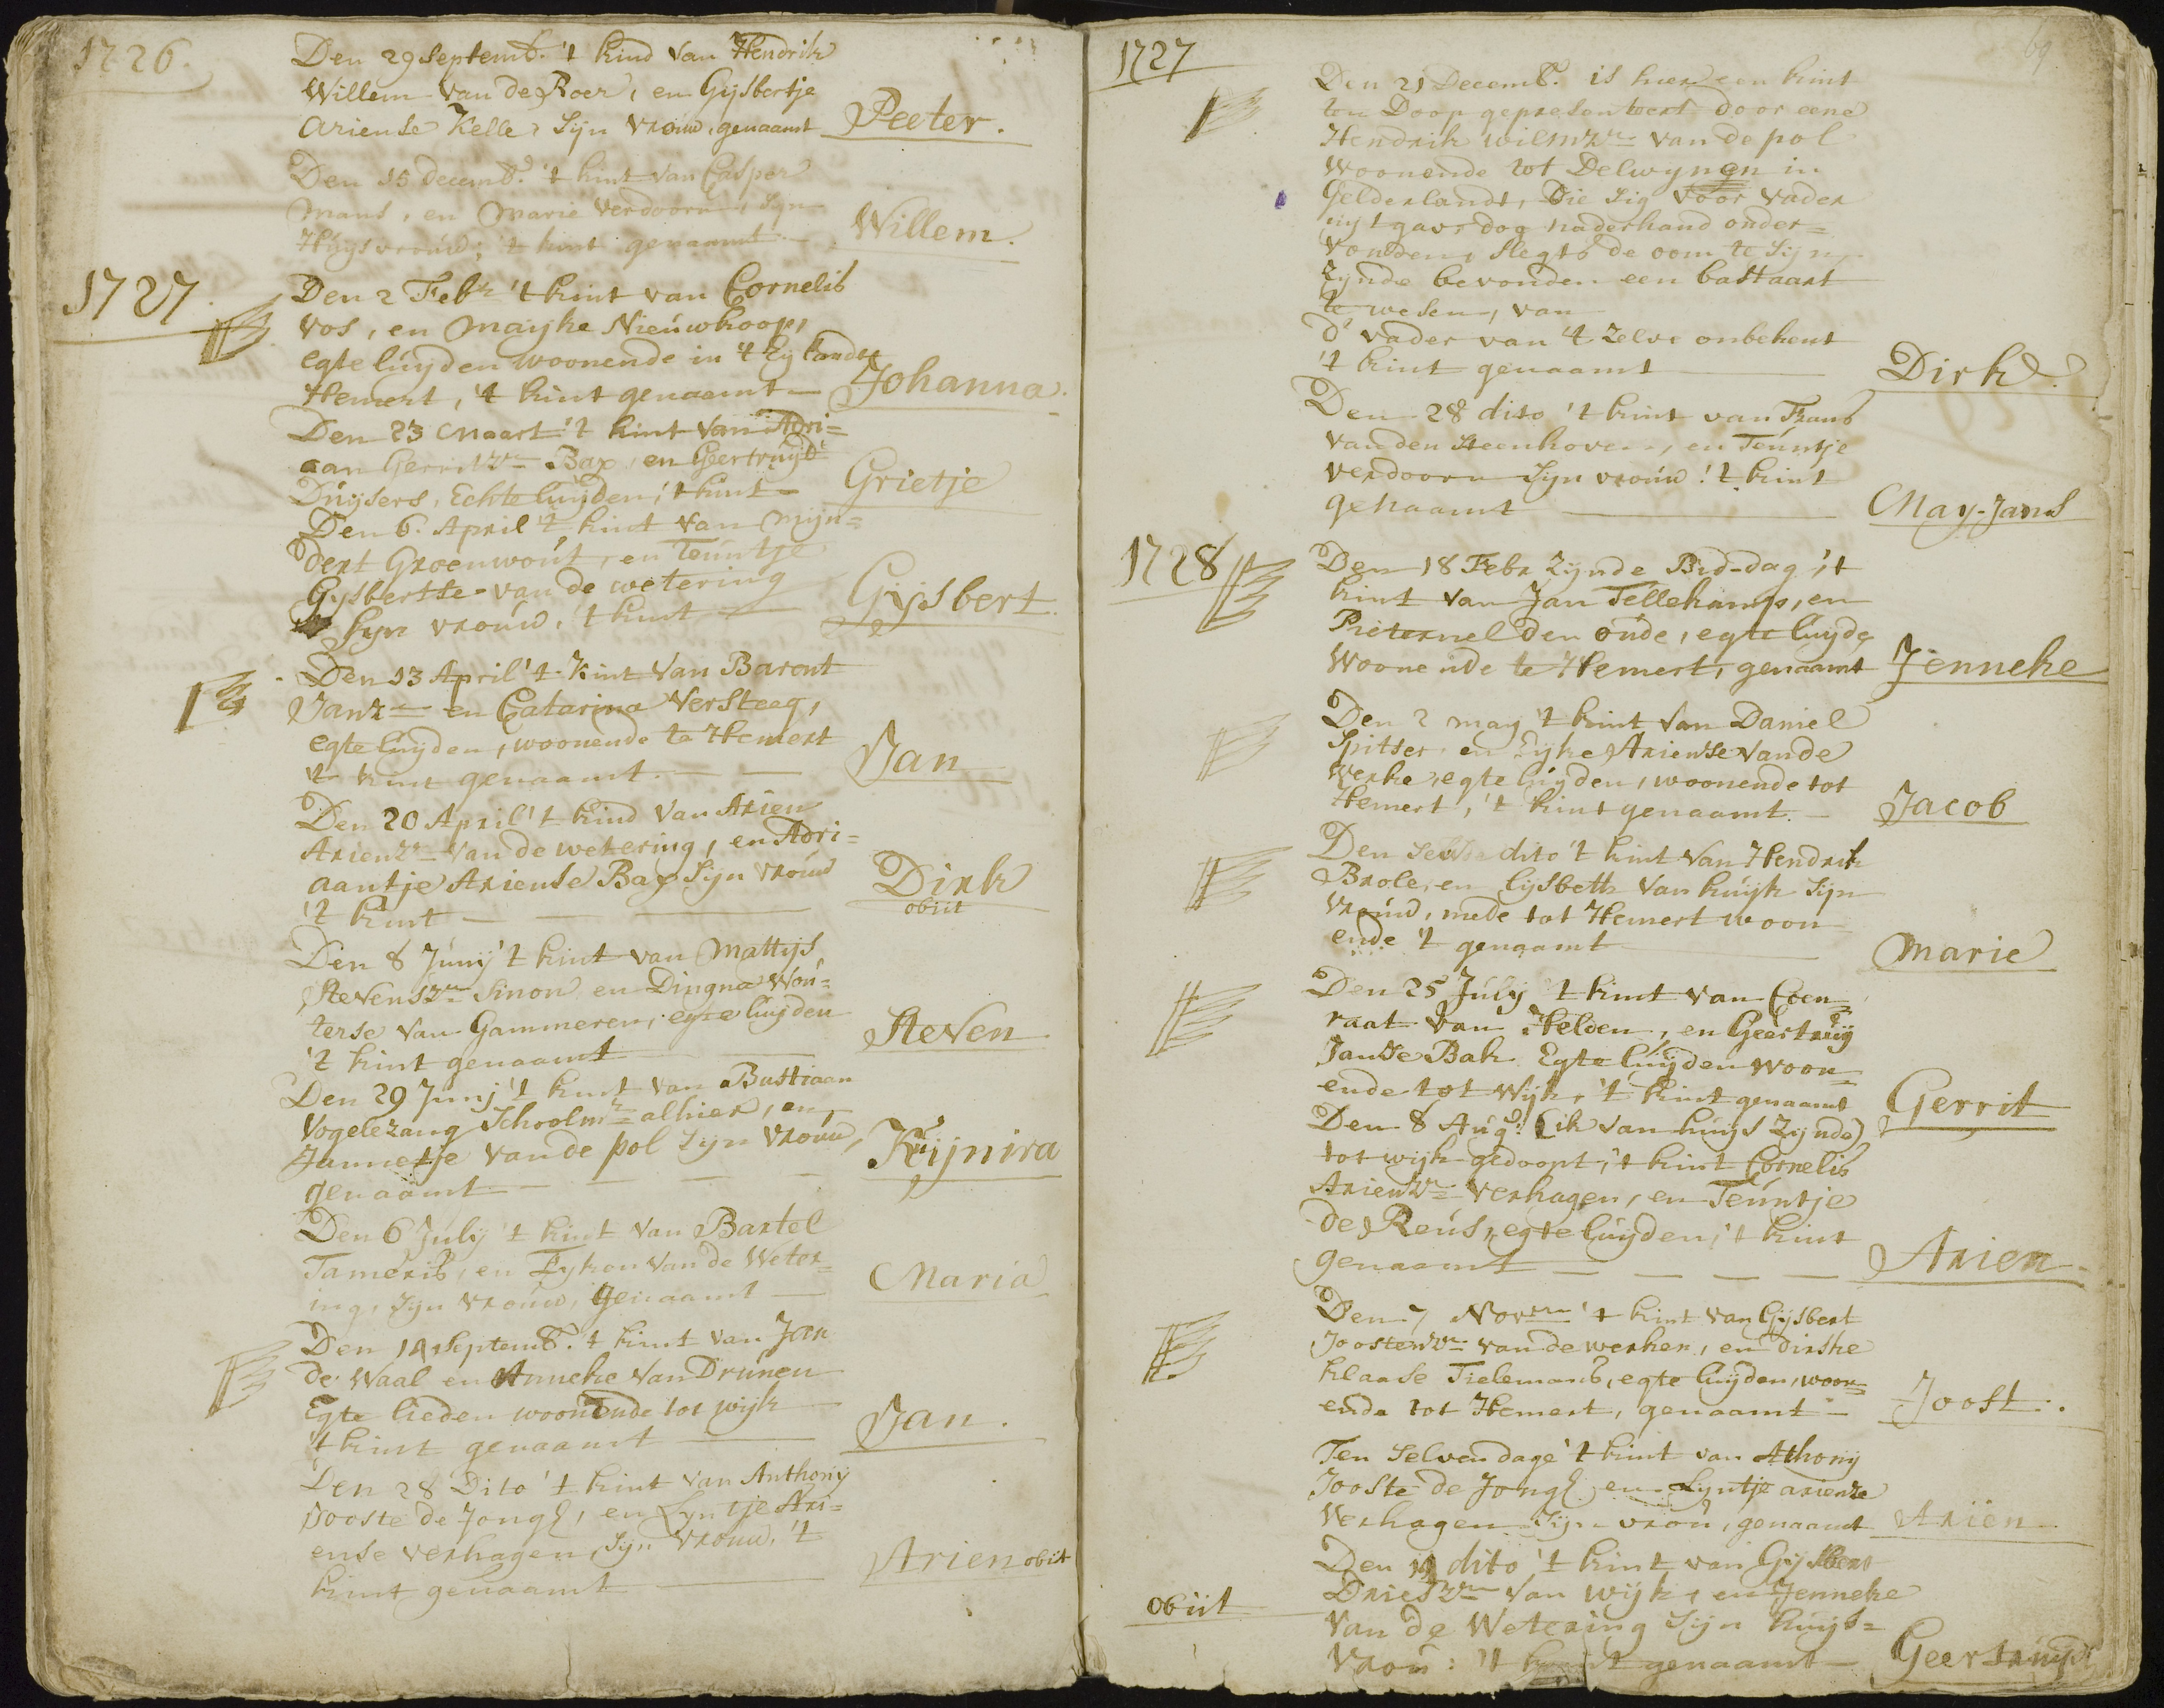 1726.
Den 29 Septemb. 't kind van Hendrik
Willem van de Roer, en Gijsbertje
Ariense Kelle, Sijn vrouw, genaamt Peeter.
Den 15 decemb. 't kint van Casper
Mans, en Marie Verdoorn, Syn
Huysvrouw; 't kint genaamt Willem.
1727.
Den 2 Febr 't kint van Cornelis
Vos, en Mayke Nieuwkoop,
egte luyden woonende in 't Eylandse
Hemert, 't kint genaamt Johanna.
Den 23 Maart 't kint van Adri=
aan Gerritzn Bax, en Geertruyd
Duysers, Echte luyden; 't kint Grietje
Den 6. April 't kint van Mijn=
dert Groenwout, en Teuntje
Gysbertse van de wetering
Syn vrouw, 't kint Gijsbert
Den 13 April 't Kint van Barent
Janzn en Catarina Versteeg,
egte luyden, woonende te Hemert
't kint genaamt. Jan
Den 20 April 't kind van Arien
Arienzn van de wetering, en Adri=
aantje Ariense Bax Syn vrouw
't kint Dirk
obiit
Den 8 Juny 't kint van Mattijs
Stevenszn Sinon en Dingna Wou=
terse van Gammeren, egte luyden
't kint genaamt Steven
Den 29 Junij 't kint van Bastiaan
Vogelezang Schoolmr alhier, en
Jannetje van de pol Syn vrouw,
genaamt Krijnira
Den 6 July 't kint van Bartel
Tameris, en Eyken van de Weter=
ing, Syn vrouw, genaamt Maria
Den 14 Septemb. 't kint van Jan
de Waal en Anneke van Drunen
Egte lieden woonende tot wijk
't kint genaamt Jan.
Den 28 Dito 't kint van Anthony
Jooste de Jongh, en Lyntje Ari=
ense verhagen, Syn vrouw, 't
kint genaamt Arien obiit
69
1727
Den 21 Decemb. is hier een kint
ten Doop gepresenteert door eene
Hendrik wilmzn van de pol
woonende tot Delwynen in
Gelderlandt, Die sig voor vader
uyt gav, dog naderhand onder=
vonden, slegts de oom te Sijn,
Zijnde bevonden een bastaart
te wesen, van
d' vader van 't zelve onbekent
't kint genaamt Dirk
Den 28 dito 't kint van Frans
van den Steenhoven, en Teuntje
verdoorn Syn vrouw: 't kint
genaamt May-Jans
1728
Den 18 Febr Zynde Bid-dag 't
kint van Jan Tellekamp, en
Pieternel den oude, egte luyde
Woonende te Hemert, genaamt Jenneke
Den 2 may 't kint van Daniel
Spitser en Eyke Arientse van de
Werke, egte luyden, woonende tot
Hemert, 't kint genaamt. Jacob
Den Selve dito 't kint van Hendrik
Brole, en Lysbeth van kuyk Syn
Vrouw, mede tot Hemert woon
ende 't genaamt Marie
Den 25 July 't kint van Coen=
raat van Helden, en Geertruy
Jantse Bak Egte luyden woon=
ende tot Wijk, 't kint genaamt Gerrit
Den 8 Aug: (ik van huys Zynde)
tot wijk gedoopt, 't kint Cornelis
Arienzn verhagen, en Teuntje
de Reus, egte luyden; 't kint
genaamt Arien
Den 7 Novem 't kint van Gysbert
Joostenzn van de werken, en dirske
klaase Tielemans, egte luyden, woon=
ende tot Hemert, genaamt Joost.
Ten Selven dage 't kint van Athony
Jooste de Jongh en Lyntje arientse
Verhagen Syn vrou, genaamt Ariën
Den 19 dito 't kint van Gysbert
obiit
Drieszn van wijk, en Jenneke
Van de Wetering Syn huys=
vrou: 't kint genaamt Geertruydt